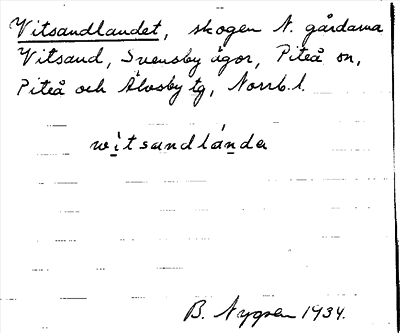 Vitsandlandet, skogen N. gårdarna
Vitsand, Svensby ägor, Piteå sn,
Piteå och Älvsby tg, Norrb. l.
wi̲tsandlánda
B. Nygren 1934.